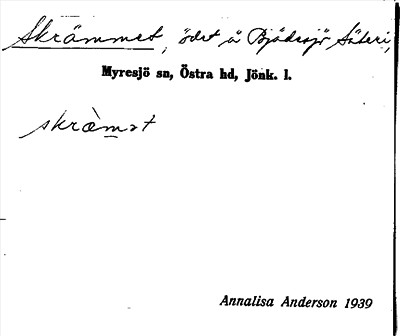 Skrämmet, ödet å Bjädesjö Säteri,
Myresjö sn, Östra hd, Jönk. l.
skràmət
Annalisa Anderson 1939